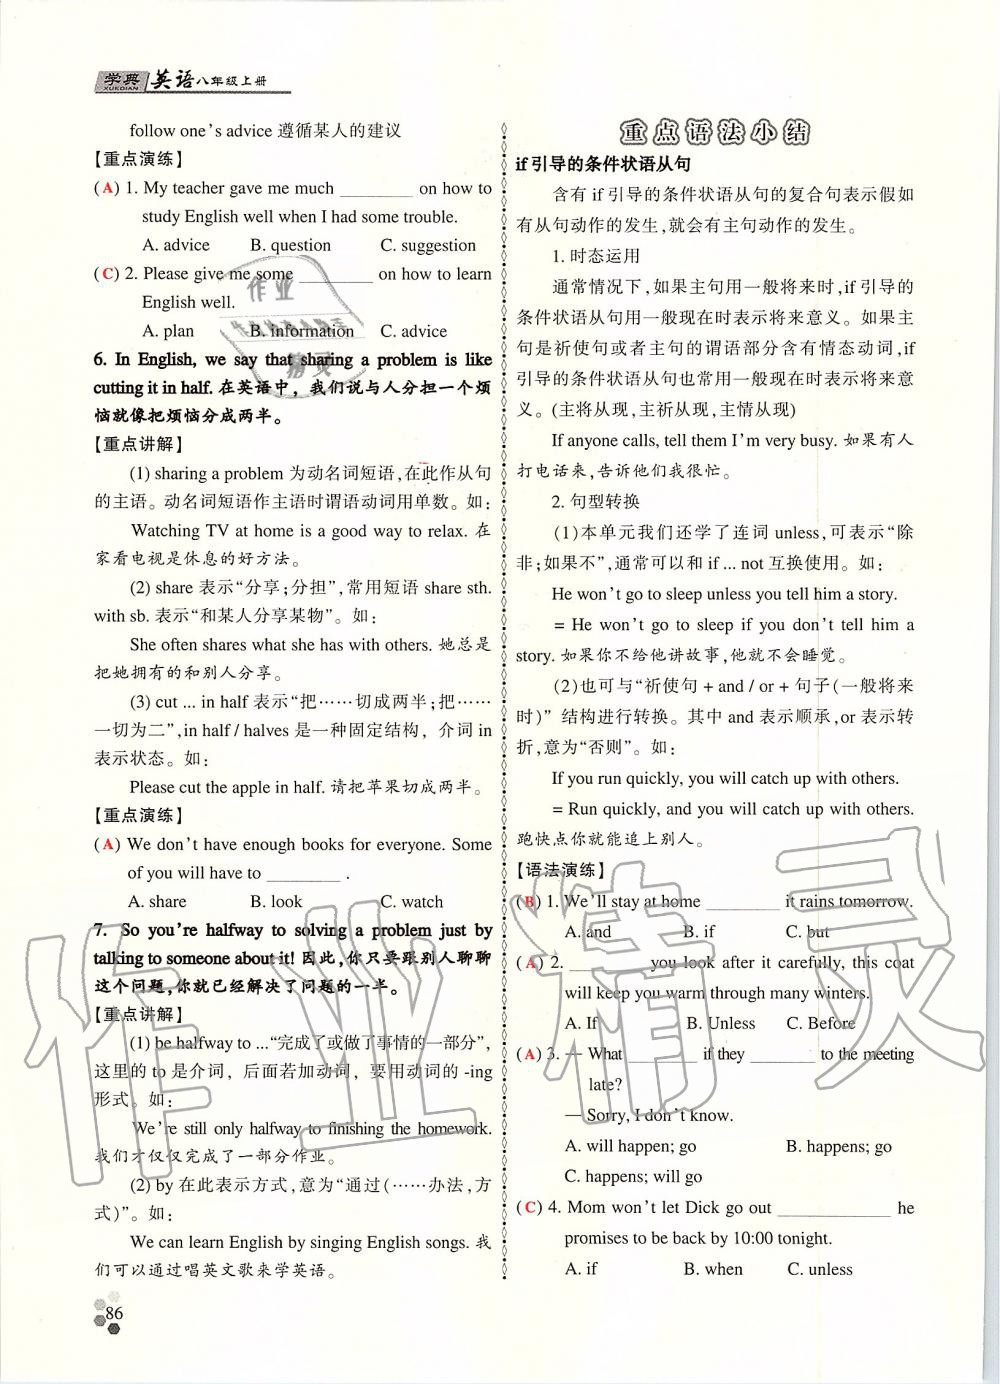 学典 XUEDIAN 英语八年级上册
follow one's advice 遵循某人的建议
【重点演练】
(A) 1. My teacher gave me much ________ on how to
study English well when I had some trouble.
A. advice B. question C. suggestion
(C) 2. Please give me some ________ on how to learn
English well.
A. plan B. information C. advice
6. In English, we say that sharing a problem is like
cutting it in half. 在英语中，我们说与人分担一个烦
恼就像把烦恼分成两半。
【重点讲解】
(1) sharing a problem 为动名词短语,在此作从句
的主语。动名词短语作主语时谓语动词用单数。如:
Watching TV at home is a good way to relax. 在
家看电视是休息的好方法。
(2) share 表示“分享;分担”,常用短语 share sth.
with sb. 表示“和某人分享某物”。如:
She often shares what she has with others. 她总是
把她拥有的和别人分享。
(3) cut ... in half 表示“把……切成两半;把……
一切为二”,in half / halves 是一种固定结构，介词 in
表示状态。如:
Please cut the apple in half. 请把苹果切成两半。
【重点演练】
(A) We don't have enough books for everyone. Some
of you will have to ________ .
A. share B. look C. watch
7. So you're halfway to solving a problem just by
talking to someone about it! 因此,你只要跟别人聊聊
这个问题,你就已经解决了问题的一半。
【重点讲解】
(1) be halfway to ...“完成了或做了事情的一部分”,
这里的 to 是介词，后面若加动词，要用动词的 -ing
形式。如:
We're still only halfway to finishing the homework.
我们才仅仅完成了一部分作业。
(2) by 在此表示方式,意为“通过(……办法,方
式)”。如:
We can learn English by singing English songs. 我
们可以通过唱英文歌来学英语。
86
重点语法小结
if 引导的条件状语从句
含有 if 引导的条件状语从句的复合句表示假如
有从句动作的发生,就会有主句动作的发生。
1. 时态运用
通常情况下,如果主句用一般将来时,if 引导的
条件状语从句用一般现在时表示将来意义。如果主
句是祈使句或者主句的谓语部分含有情态动词,if
引导的条件状语从句也常用一般现在时表示将来意
义。(主将从现,主祈从现,主情从现)
If anyone calls, tell them I'm very busy. 如果有人
打电话来,告诉他们我很忙。
2. 句型转换
(1)本单元我们还学了连词 unless,可表示“除
非;如果不”,通常可以和 if ... not 互换使用。如:
He won't go to sleep unless you tell him a story.
= He won't go to sleep if you don't tell him a
story. 如果你不给他讲故事,他就不会睡觉。
(2)也可与“祈使句 + and / or + 句子(一般将来
时)” 结构进行转换。其中 and 表示顺承,or 表示转
折,意为“否则”。如:
If you run quickly, you will catch up with others.
= Run quickly, and you will catch up with others.
跑快点你就能追上别人。
【语法演练】
(B) 1. We'll stay at home ________ it rains tomorrow.
A. and B. if C. but
(A) 2. ________ you look after it carefully, this coat
will keep you warm through many winters.
A. If B. Unless C. Before
(A) 3. — What ________ if they ________ to the meeting
late?
— Sorry, I don't know.
A. will happen; go B. happens; go
C. happens; will go
(C) 4. Mom won't let Dick go out ____________ he
promises to be back by 10:00 tonight.
A. if B. when C. unless
作业精灵
作业
精灵